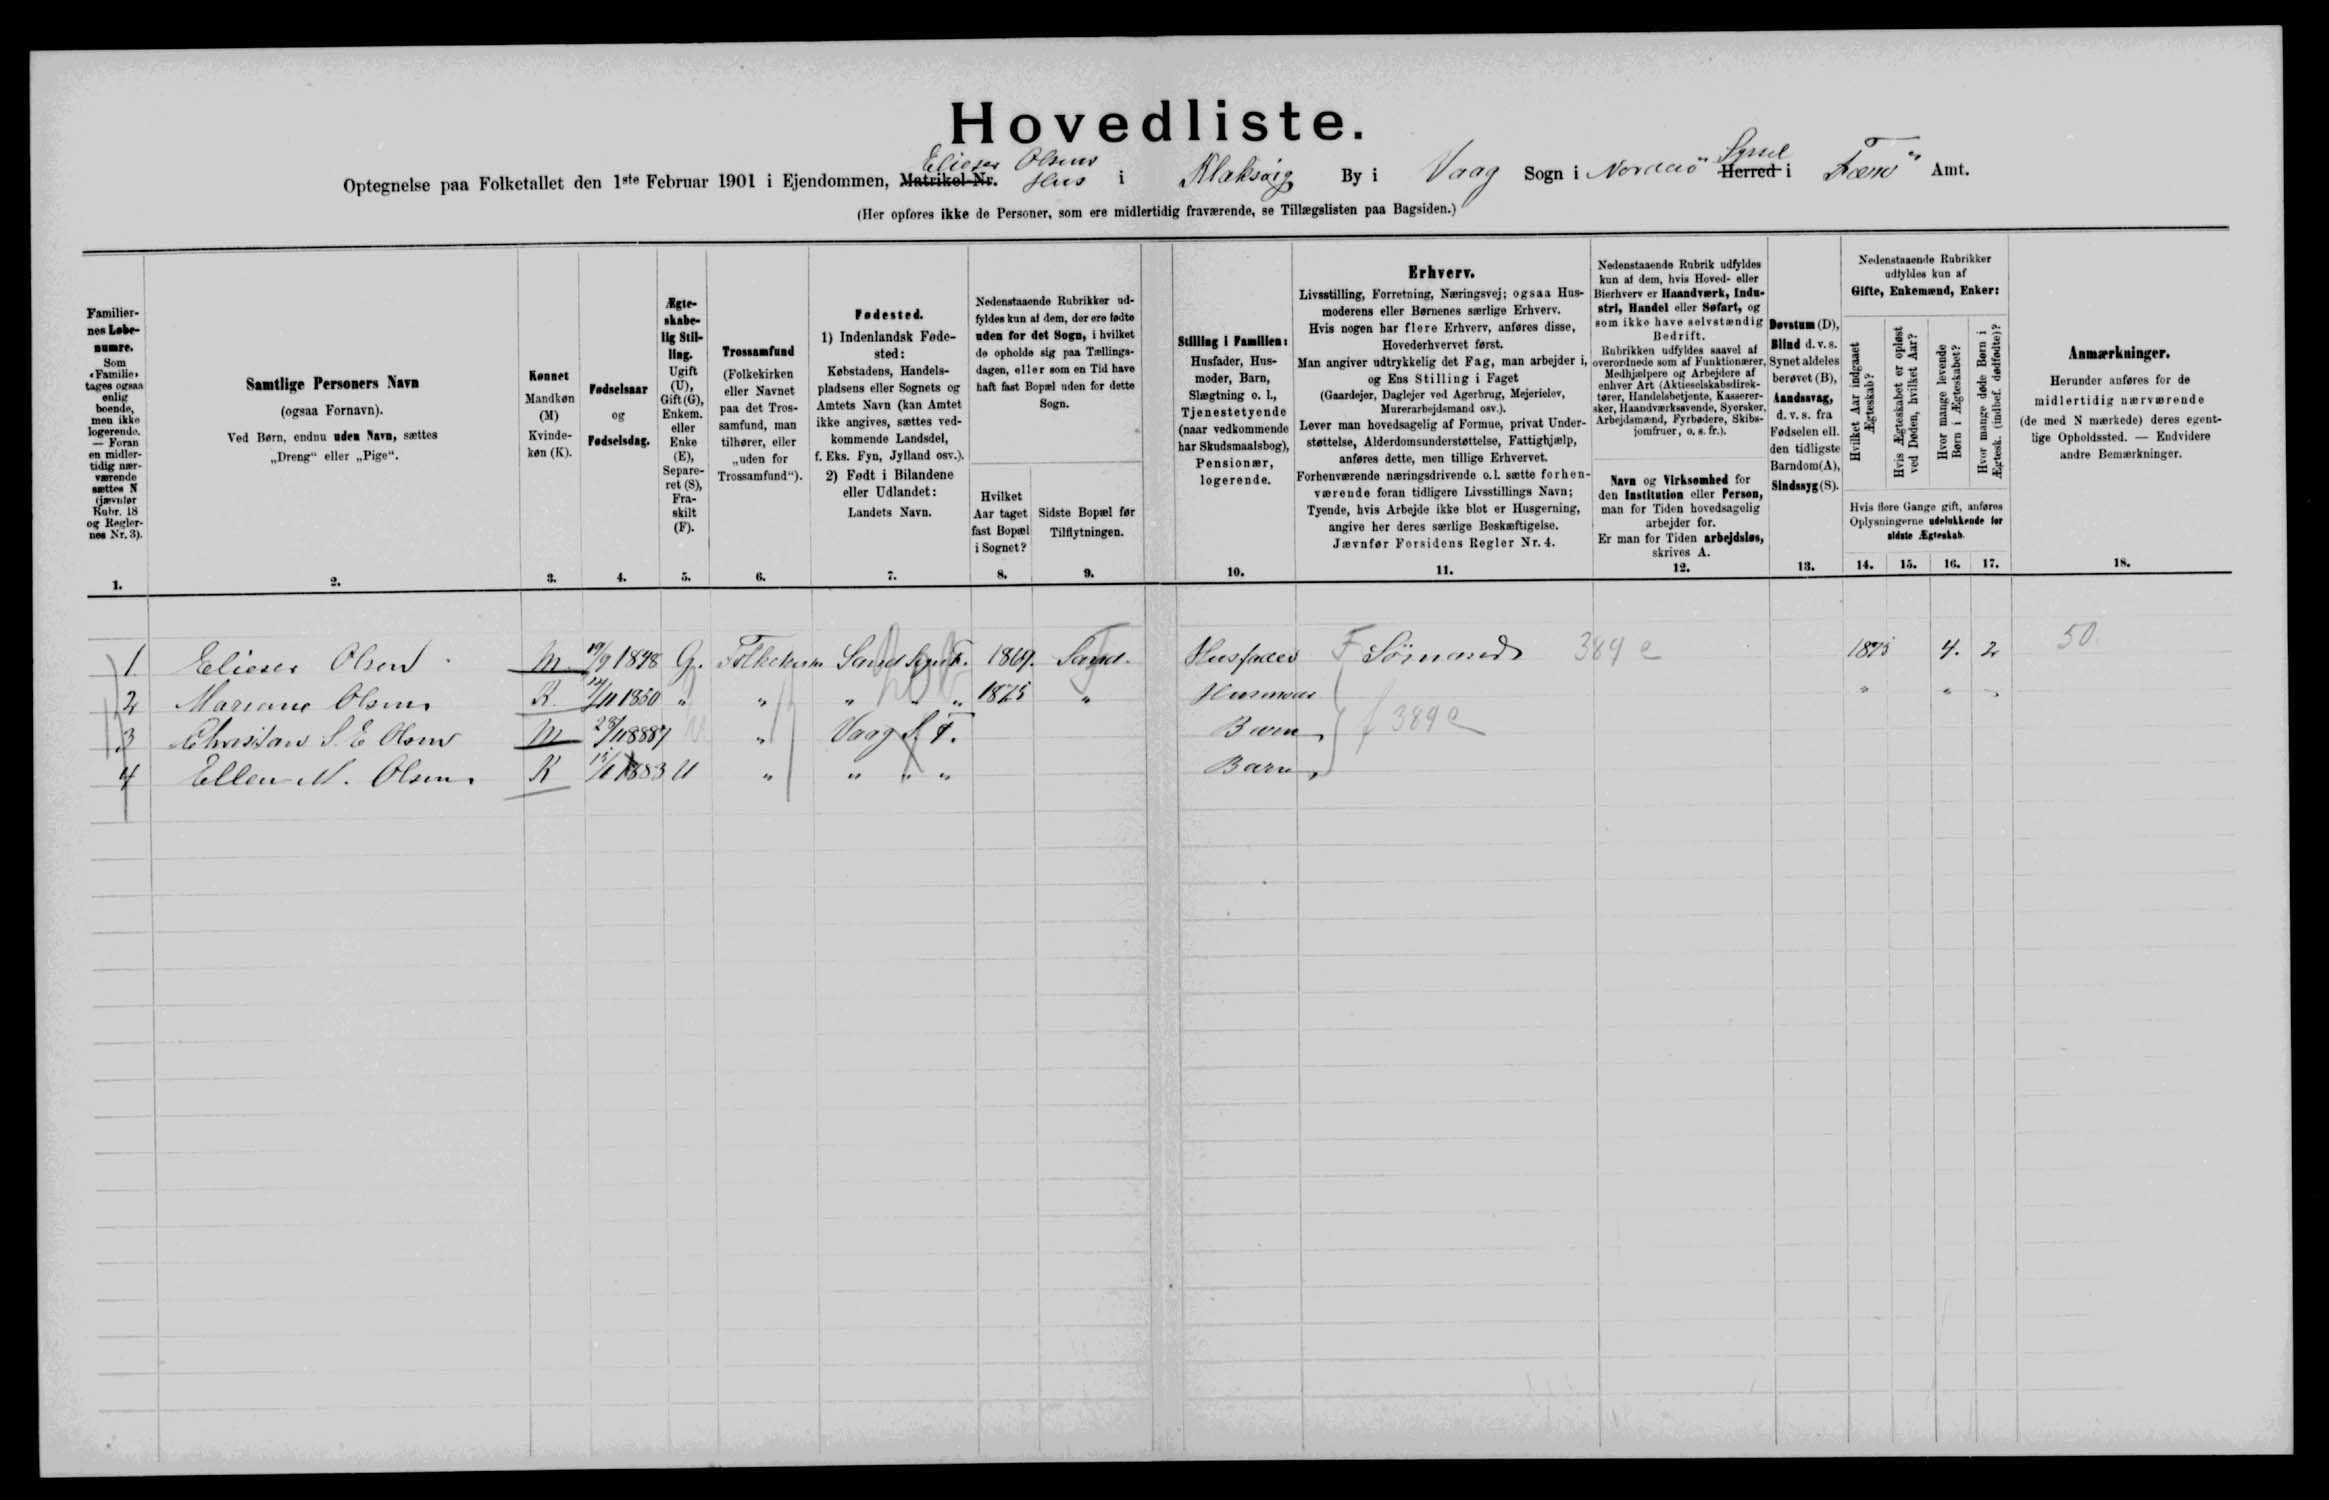 Hovedliste.
Elieser Olsens
Optegnelse paa Folketallet den 1ste Februar 1901 i Ejendommen, Matrikel-Nr. Hus i Klaksvig By i Vaag Sogn i Norderö Syssel Herred i Færö Amt.
(Her opføres ikke de Personer, som ere midlertidig fraværende, se Tillægslisten paa Bagsiden.)
Familier-
nes Løbe-
numre.
Som
«Familie»
tages ogsaa
enlig
boende,
men ikke
logerende.
— Foran
en midler-
tidig nær-
værende
sættes N
(jævnfør
Rubr. 18
og Regler-
nes Nr. 3).
1.
Samtlige Personers Navn
(ogsaa Fornavn).
Ved Børn, endnu uden Navn, sættes
„Dreng“ eller „Pige“.
2.
Kønnet
Mandkøn
(M)
Kvinde-
køn (K).
3.
Fødselsaar
og
Fødselsdag.
4.
Ægte-
skabe-
lig Stil-
ling.
Ugift
(U),
Gift (G),
Enkem.
eller
Enke
(E),
Separe-
ret (S),
Fra-
skilt
(F).
5.
Trossamfund
(Folkekirken
eller Navnet
paa det Tros-
samfund, man
tilhører, eller
„uden for
Trossamfund“).
6.
Fødested.
1) Indenlandsk Føde-
sted:
Købstadens, Handels-
pladsens eller Sognets og
Amtets Navn (kan Amtet
ikke angives, sættes ved-
kommende Landsdel,
f. Eks. Fyn, Jylland osv.).
2) Født i Bilandene
eller Udlandet:
Landets Navn.
7.
Nedenstaaende Rubrikker ud-
fyldes kun af dem, der ere fødte
uden for det Sogn, i hvilket
de opholde sig paa Tællings-
dagen, eller som en Tid have
haft fast Bopæl uden for dette
Sogn.
Hvilket
Aar taget
fast Bopæl
i Sognet?
8.
Sidste Bopæl før
Tilflytningen.
9.
Stilling i Familien:
Husfader, Hus-
moder, Barn,
Slægtning o. l.,
Tjenestetyende
(naar vedkommende
har Skudsmaalsbog),
Pensionær,
logerende.
10.
Erhverv.
Livsstilling, Forretning, Næringsvej; ogsaa Hus-
moderens eller Børnenes særlige Erhverv.
Hvis nogen har flere Erhverv, anføres disse,
Hovederhvervet først.
Man angiver udtrykkelig det Fag, man arbejder i,
og Ens Stilling i Faget
(Gaardejer, Daglejer ved Agerbrug, Mejerielev,
Murerarbejdsmand osv.).
Lever man hovedsagelig af Formue, privat Under-
støttelse, Alderdomsunderstøttelse, Fattighjælp,
anføres dette, men tillige Erhvervet.
Forhenværende næringsdrivende o. l. sætte forhen-
værende foran tidligere Livsstillings Navn;
Tyende, hvis Arbejde ikke blot er Husgerning,
angive her deres særlige Beskæftigelse.
Jævnfør Forsidens Regler Nr. 4.
11.
Nedenstaaende Rubrik udfyldes
kun af dem, hvis Hoved- eller
Bierhverv er Haandværk, Indu-
stri, Handel eller Søfart, og
som ikke have selvstændig
Bedrift.
Rubrikken udfyldes saavel af
overordnede som af Funktionærer,
Medhjælpere og Arbejdere af
enhver Art (Aktieselskabsdirek-
tører, Handelsbetjente, Kasserer-
sker, Haandværkssvende, Syersker,
Arbejdsmænd, Fyrbødere, Skibs-
jomfruer, o. s. fr.).
Navn og Virksomhed for
den Institution eller Person,
man for Tiden hovedsagelig
arbejder for.
Er man for Tiden arbejdsløs,
skrives A.
12.
Døvstum (D),
Blind d. v. s.
Synet aldeles
berøvet (B),
Aandssvag,
d. v. s. fra
Fødselen ell.
den tidligste
Barndom (A),
Sindssyg (S).
13.
Nedenstaaende Rubrikker
udfyldes kun af
Gifte, Enkemænd, Enker:
Hvilket Aar indgaaet
Ægteskab?
Hvis Ægteskabet er opløst
ved Døden, hvilket Aar?
Hvor mange levende
Børn i Ægteskabet?
Hvor mange døde Børn i
Ægtesk. (indbef. dødfødte)?
Hvis flere Gange gift, anføres
Oplysningerne udelukkende for
sidste Ægteskab.
14. 15. 16. 17.
Anmærkninger.
Herunder anføres for de
midlertidig nærværende
(de med N mærkede) deres egent-
lige Opholdssted. — Endvidere
andre Bemærkninger.
18.
1 Elieser Olsen M 1848 G. Folkekirken Sand Sogn F. 1869. Sand. Husfader F Sömand 389 e 1875 4. 2 50.
2 Mariane Olsen K. 1850 " " " " " 1875 " Husmoder " "
3 Christian S. E Olsen M 1888 " Vaag S. F. Barn f 389 e
4 Ellen M. Olsen K 1883 U " " " " Barn